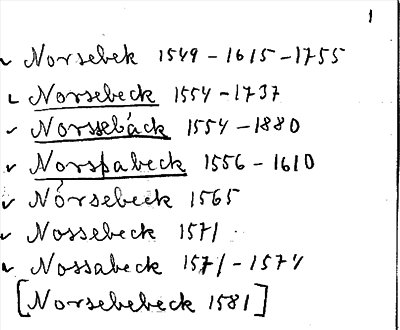 1
✓ Norsebek 1549 – 1615 – 1755
✓ Norsebeck 1554 – 1737
✓ Norssebäck 1554 – 1880
✓ Norspabeck 1556 – 1610
✓ Nórsebeck 1565
✓ Nossebeck 1571
✓ Nossabeck 1571 – 1574
[Norsebebeck 1581]